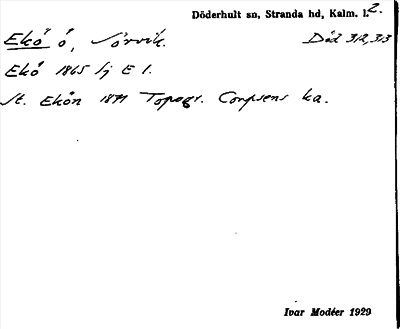 Döderhult sn, Stranda hd, Kalm. l. 2.
Ekö ö, Sörvik. Död 312, 313
Ekö 1865 Sj E 1.
St. Ekön 1871 Topogr. Corpsens ka.
Ivar Modéer 1929